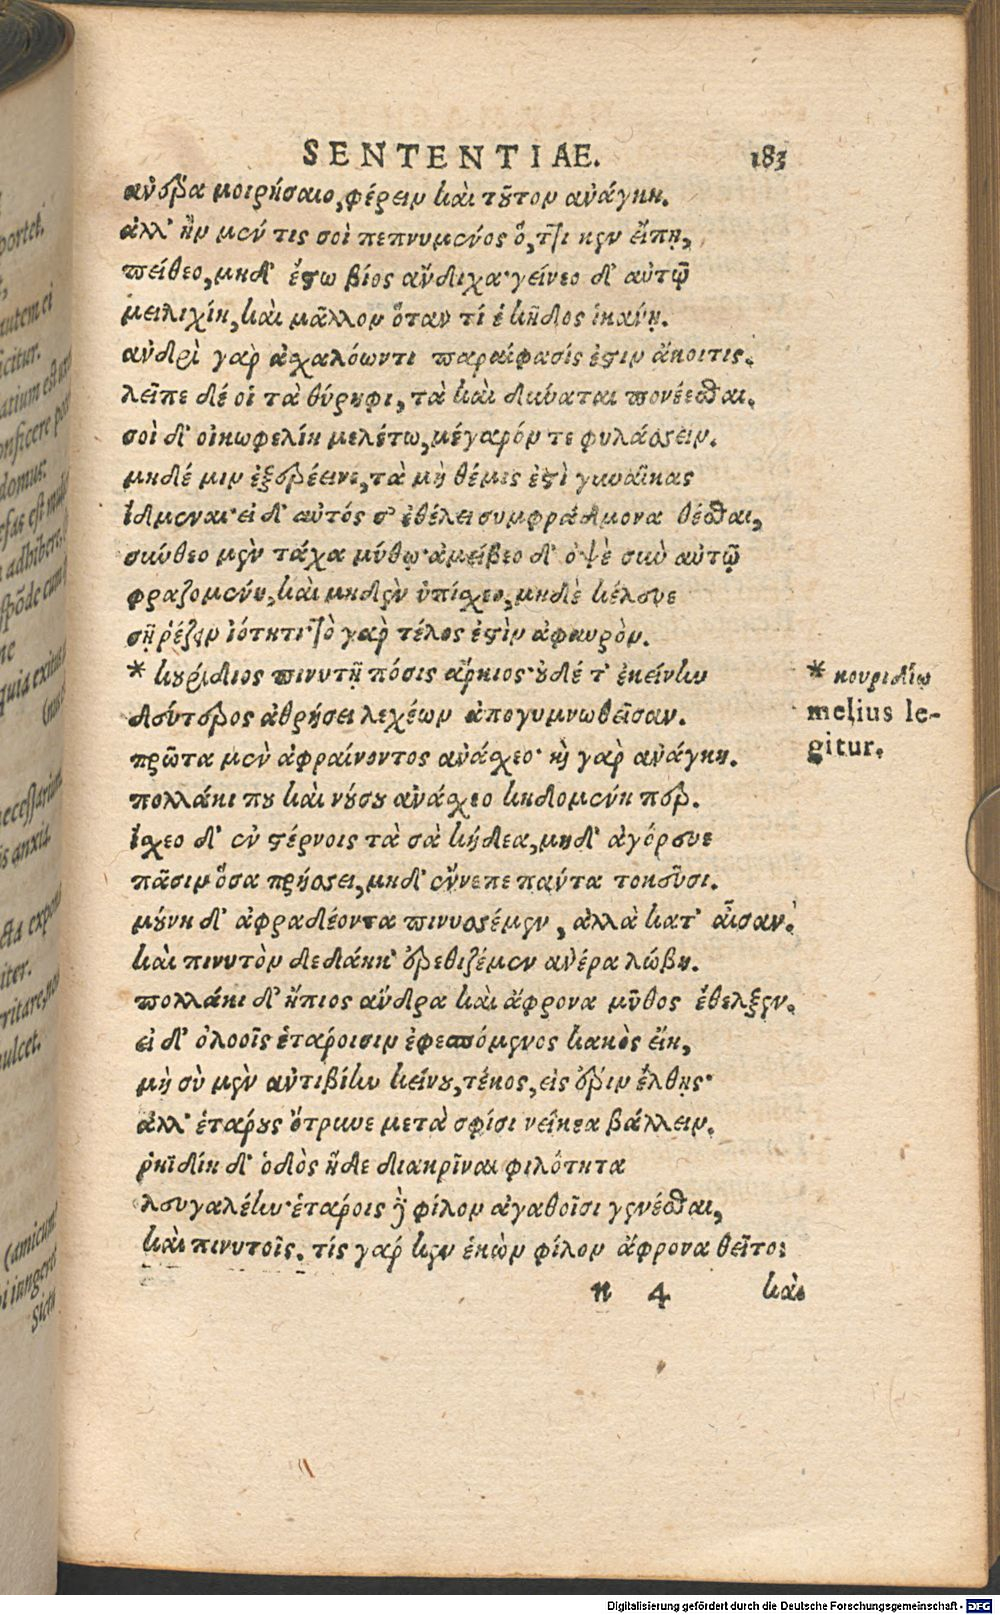 SENTENTIAE. 183
ἄνδρα μοιρήσαιο, φέρειν καὶ τοῦτον ἀνάγκη.
ἀλλ' ἢν μέν τις σοὶ πεπνυμένος ὅ, ττι κεν εἴπῃ,
πείθεο, μηδ' ἔστω βίος ἄνδιχα· γείνεο δ' αὐτῷ
μειλιχίη, καὶ μᾶλλον ὅταν τί ἑ κῆδος ἱκάνῃ.
ἀνδρὶ γὰρ ἀσχαλόωντι παραίφασίς ἐστιν ἄκοιτις.
λεῖπε δέ οἱ τὰ θύρηφι, τὰ καὶ δύναται πονέεσθαι.
σοὶ δ' οἰκωφελίη μελέτω, μέγαρόν τε φυλάσσειν.
μηδέ μιν ἐξερέεινε, τὰ μὴ θέμις ἐστὶ γυναῖκας
ἴδμεναι· εἰ δ' αὐτός σ' ἐθέλει συμφράδμονα θέσθαι,
σύνθεο μὲν τάχα μύθῳ· ἀμείβεο δ' ὀψὲ σὺ αὐτῷ
φραζομένη, καὶ μηδὲν ὑπίσχεο, μηδὲ κέλευε
σῇ ῥέζειν ἰότητι· τὸ γὰρ τέλος ἐστὶν ἀφαυρόν.
* κουρίδιος πινυτῇ πόσις ἄρκιος· οὐδέ τ' ἐκείνην
δεύτερος ἀθρήσει λεχέων ἀπογυμνωθεῖσαν.
πρῶτα μὲν ἀφραίνοντος ἀνάσχεο· ἦ γὰρ ἀνάγκη.
πολλάκι που καὶ νούσου ἀνάσχεο κηδομένη περ.
ἴσχεο δ' ἐν στέρνοις τὰ σὰ κήδεα, μηδ' ἀγόρευε
πᾶσιν ὅσα πρήσσει, μηδ' ἔννεπε πάντα τοκεῦσι.
μούνη δ' ἀφραδέοντα πινυσσέμεν, ἀλλὰ κατ' αἶσαν.
καὶ πινυτὸν δεδάηκ' ἐρεθιζέμεν ἀνέρα λώβη.
πολλάκι δ' ἤπιος ἄνδρα καὶ ἄφρονα μῦθος ἔθελξεν.
εἰ δ' ὀλοοῖς ἑτάροισιν ἐφεσπόμενος κακὸς εἴη,
μὴ σὺ μὲν ἀντιβίην κείνου, τέκος, εἰς ἔριν ἔλθῃς·
ἀλλ' ἑτάρους ὄτρυνε μετὰ σφίσι νείκεα βάλλειν.
ῥηϊδίη δ' ὁδὸς ἥδε διακρῖναι φιλότητα
λευγαλέην· ἑτάροις δὲ φίλον ἀγαθοῖσι γενέσθαι,
καὶ πινυτοῖς. τίς γάρ κεν ἑκὼν φίλον ἄφρονα θεῖτο;
n 4 καὶ
* κουριδίῳ
melius le-
gitur.
portet.
autem ei
icitur.
domus:
ne
quia exitus
is anxia
iter.
ritare, non
mulcet.
(amicum
oi iungeret
Sicut
Digitalisierung gefördert durch die Deutsche Forschungsgemeinschaft - DFG